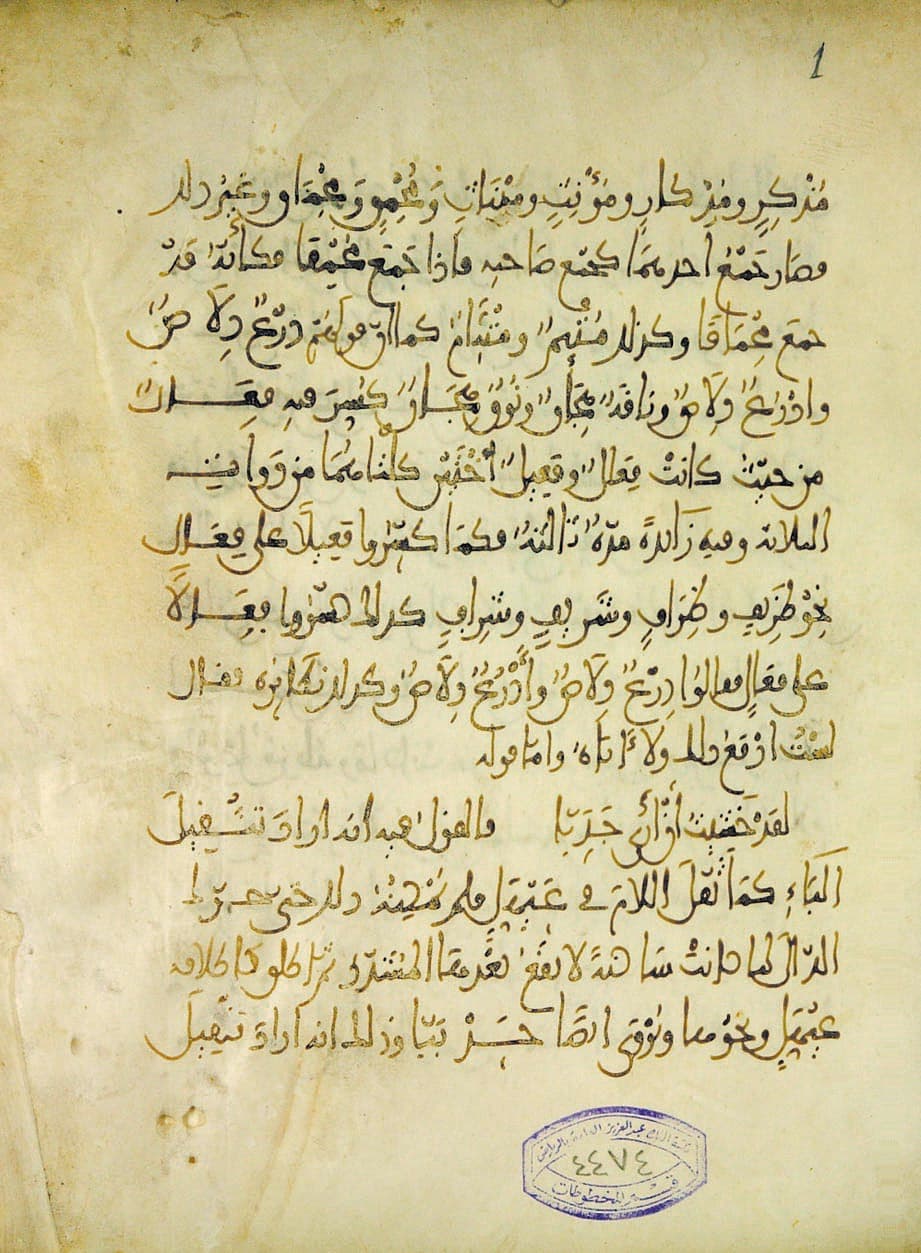 1
مُذْكِرٍ ومِذْكارٍ ومُؤْنِثٍ ومِئْنَاثٍ وَمُحْمِقٍ وَمِحْمَاقٍ وغيرُ ذلك
فصَار جَمْعُ احدهمَا كجمع صَاحبه فاذا جَمَعَ مُحْمِقًا فكأنّهُ قدْ
جمعَ مِحْمَاقًا وكذلك مُتْئِمٌ ومِتْآمٌ كما انّ قولهُم دِرْعٌ دِلَاصٌ
وادْرُعٌ دِلَاصٌ وناقةٌ هِجَانٌ ونُوقٌ هِجَانٌ كُسِّرَ فيهِ فِعَالٌ
من حيْثُ كانتْ فِعَالٌ وفَعِيلٌ أخْتَيْنِ كلتاهُمَا من ذَوات
الثلاثة وفيه زَائدةٌ مدّةٌ ثالثةٌ فكمَا كسّروا فَعِيلًا على فِعَالٍ
نحْو ظَرِيفٍ وظِرَافٍ وشَرِيفٍ وشِرَافٍ كذلك كسّروا فِعَالًا
على فِعَالٍ فقالوا دِرْعٌ دِلَاصٌ وأدْرُعٌ دِلَاصٌ وكذلك نَظَائرُه قال
لسْتُ ادْفَعُ ذلك ولا آبَاهُ واما قوله
لقدْ خَشِيتُ أنْ أرَى جَدَبّا فالقولُ فيه انه ارادَ تثقِيلَ
البَاءِ كمَا ثقّلَ اللامَ في عَيْهَلٍّ فلم يُمْكِنْهُ ذلك حتى حرّك
الدّالَ لما كانتْ سَاكنةً لا يقَعُ بعْدهَا المُشدّد ثمّ اطلق كاطلاقه
عَيْهَلّ ونحوُها ويُرْوَى ايضًا جَدْبَبّا وذلك انه ارادَ تثقِيلَ
٤٤٧٤
قسم المخطوطات